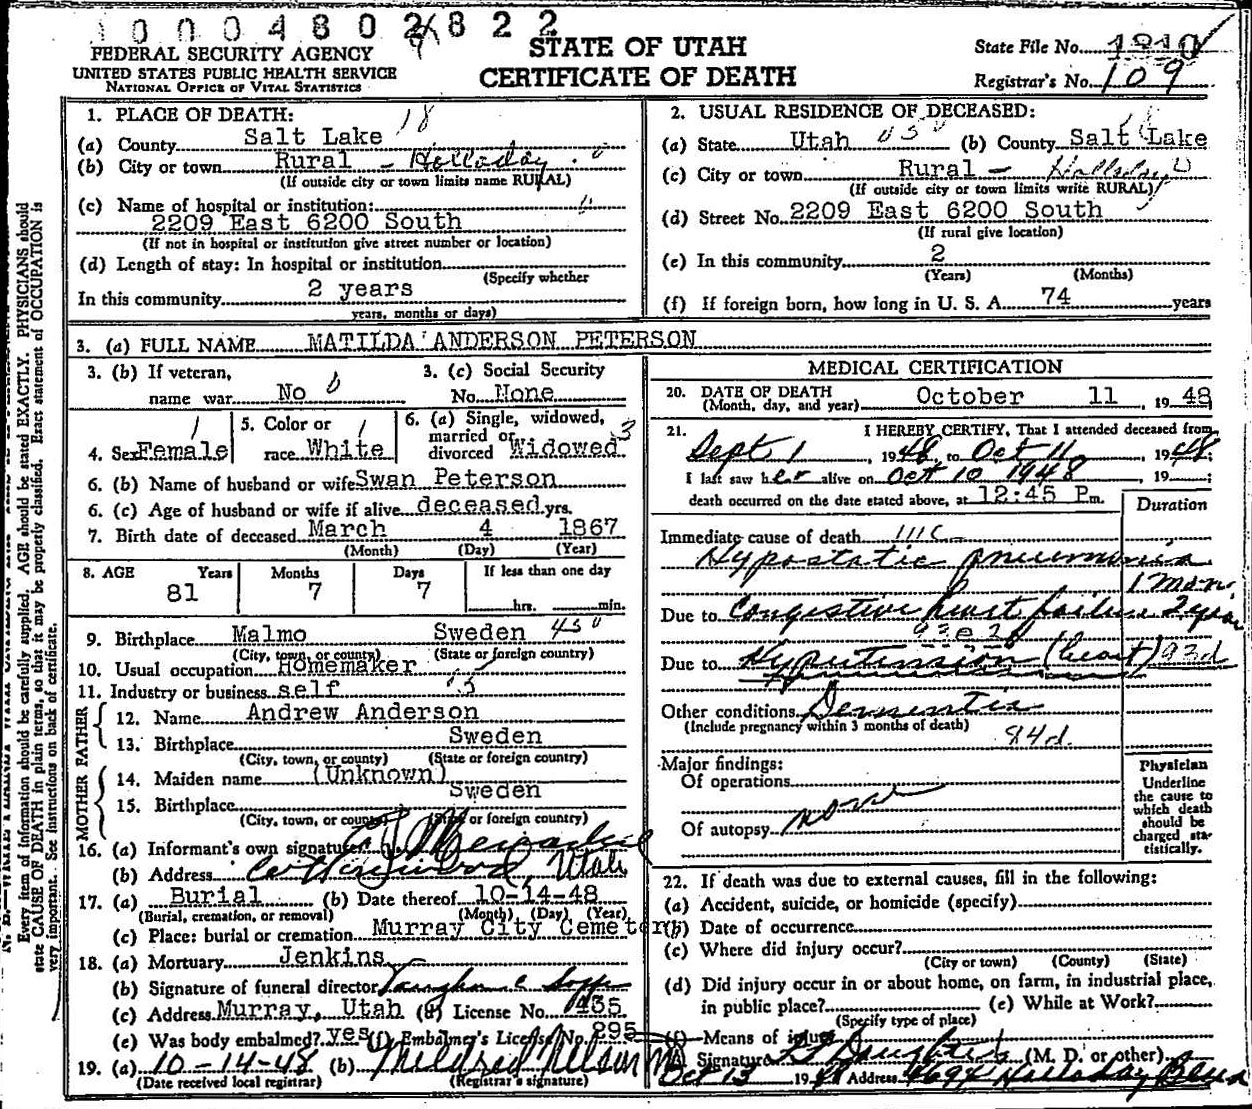 1 0 0 0 4 8 0 2 8 2 2
FEDERAL SECURITY AGENCY
UNITED STATES PUBLIC HEALTH SERVICE
NATIONAL OFFICE OF VITAL STATISTICS
STATE OF UTAH
CERTIFICATE OF DEATH
State File No. 1810
Registrar's No. 109
1. PLACE OF DEATH: 18
(a) County Salt Lake
(b) City or town Rural - Holladay
(If outside city or town limits name RURAL)
(c) Name of hospital or institution:
2209 East 6200 South
(If not in hospital or institution give street number or location)
(d) Length of stay: In hospital or institution
(Specify whether
In this community 2 years
years, months or days)
2. USUAL RESIDENCE OF DECEASED:
(a) State Utah (b) County Salt Lake
(c) City or town Rural - Holladay
(If outside city or town limits write RURAL)
(d) Street No. 2209 East 6200 South
(If rural give location)
(e) In this community 2
(Years) (Months)
(f) If foreign born, how long in U. S. A. 74 years
3. (a) FULL NAME MATILDA ANDERSON PETERSON
3. (b) If veteran, name war No
3. (c) Social Security No. None
4. Sex Female
5. Color or race White
6. (a) Single, widowed, married or divorced Widowed 3
6. (b) Name of husband or wife Swan Peterson
6. (c) Age of husband or wife if alive deceased yrs.
7. Birth date of deceased March 4 1867
(Month) (Day) (Year)
8. AGE Years Months Days If less than one day
81 7 7 hrs. min.
9. Birthplace Malmo Sweden 450
(City, town, or county) (State or foreign country)
10. Usual occupation Homemaker
11. Industry or business self
FATHER
12. Name Andrew Anderson
13. Birthplace Sweden
(City, town, or county) (State or foreign country)
MOTHER
14. Maiden name (Unknown)
15. Birthplace Sweden
(City, town, or county) (State or foreign country)
16. (a) Informant's own signature
(b) Address Cottonwood, Utah
17. (a) Burial (b) Date thereof 10-14-48
(Burial, cremation, or removal) (Month) (Day) (Year)
(c) Place: burial or cremation Murray City Cemetery
18. (a) Mortuary Jenkins
(b) Signature of funeral director
(c) Address Murray, Utah (d) License No. 435
(e) Was body embalmed? yes (f) Embalmer's License No. 295
19. (a) 10-14-48 (b) Mildred Nelson
(Date received local registrar) (Registrar's signature)
MEDICAL CERTIFICATION
20. DATE OF DEATH
(Month, day, and year) October 11, 1948
21. I HEREBY CERTIFY, That I attended deceased from
Sept 1, 1948 to Oct 11, 1948;
I last saw her alive on Oct 10 1948, 19 ;
death occurred on the date stated above, at 12:45 Pm.
Duration
Immediate cause of death 111c
Hypostatic pneumonia
1 mon.
Due to Congestive heart failure 2 year
93e2b
Due to Hypertension (heart) 93d
Other conditions Dementia
(Include pregnancy within 3 months of death)
84d.
Major findings:
Of operations
Of autopsy none
Physician
Underline
the cause to
which death
should be
charged sta-
tistically.
22. If death was due to external causes, fill in the following:
(a) Accident, suicide, or homicide (specify)
(b) Date of occurrence
(c) Where did injury occur?
(City or town) (County) (State)
(d) Did injury occur in or about home, on farm, in industrial place,
in public place? (e) While at Work?
(Specify type of place)
(f) Means of injury
Signature (M. D. or other)
Oct 13 1948 Address Holladay Blvd
Every item of information should be carefully supplied. AGE should be stated EXACTLY. PHYSICIANS should
state CAUSE OF DEATH in plain terms, so that it may be properly classified. Exact statement of OCCUPATION is
very important. See instructions on back of certificate.